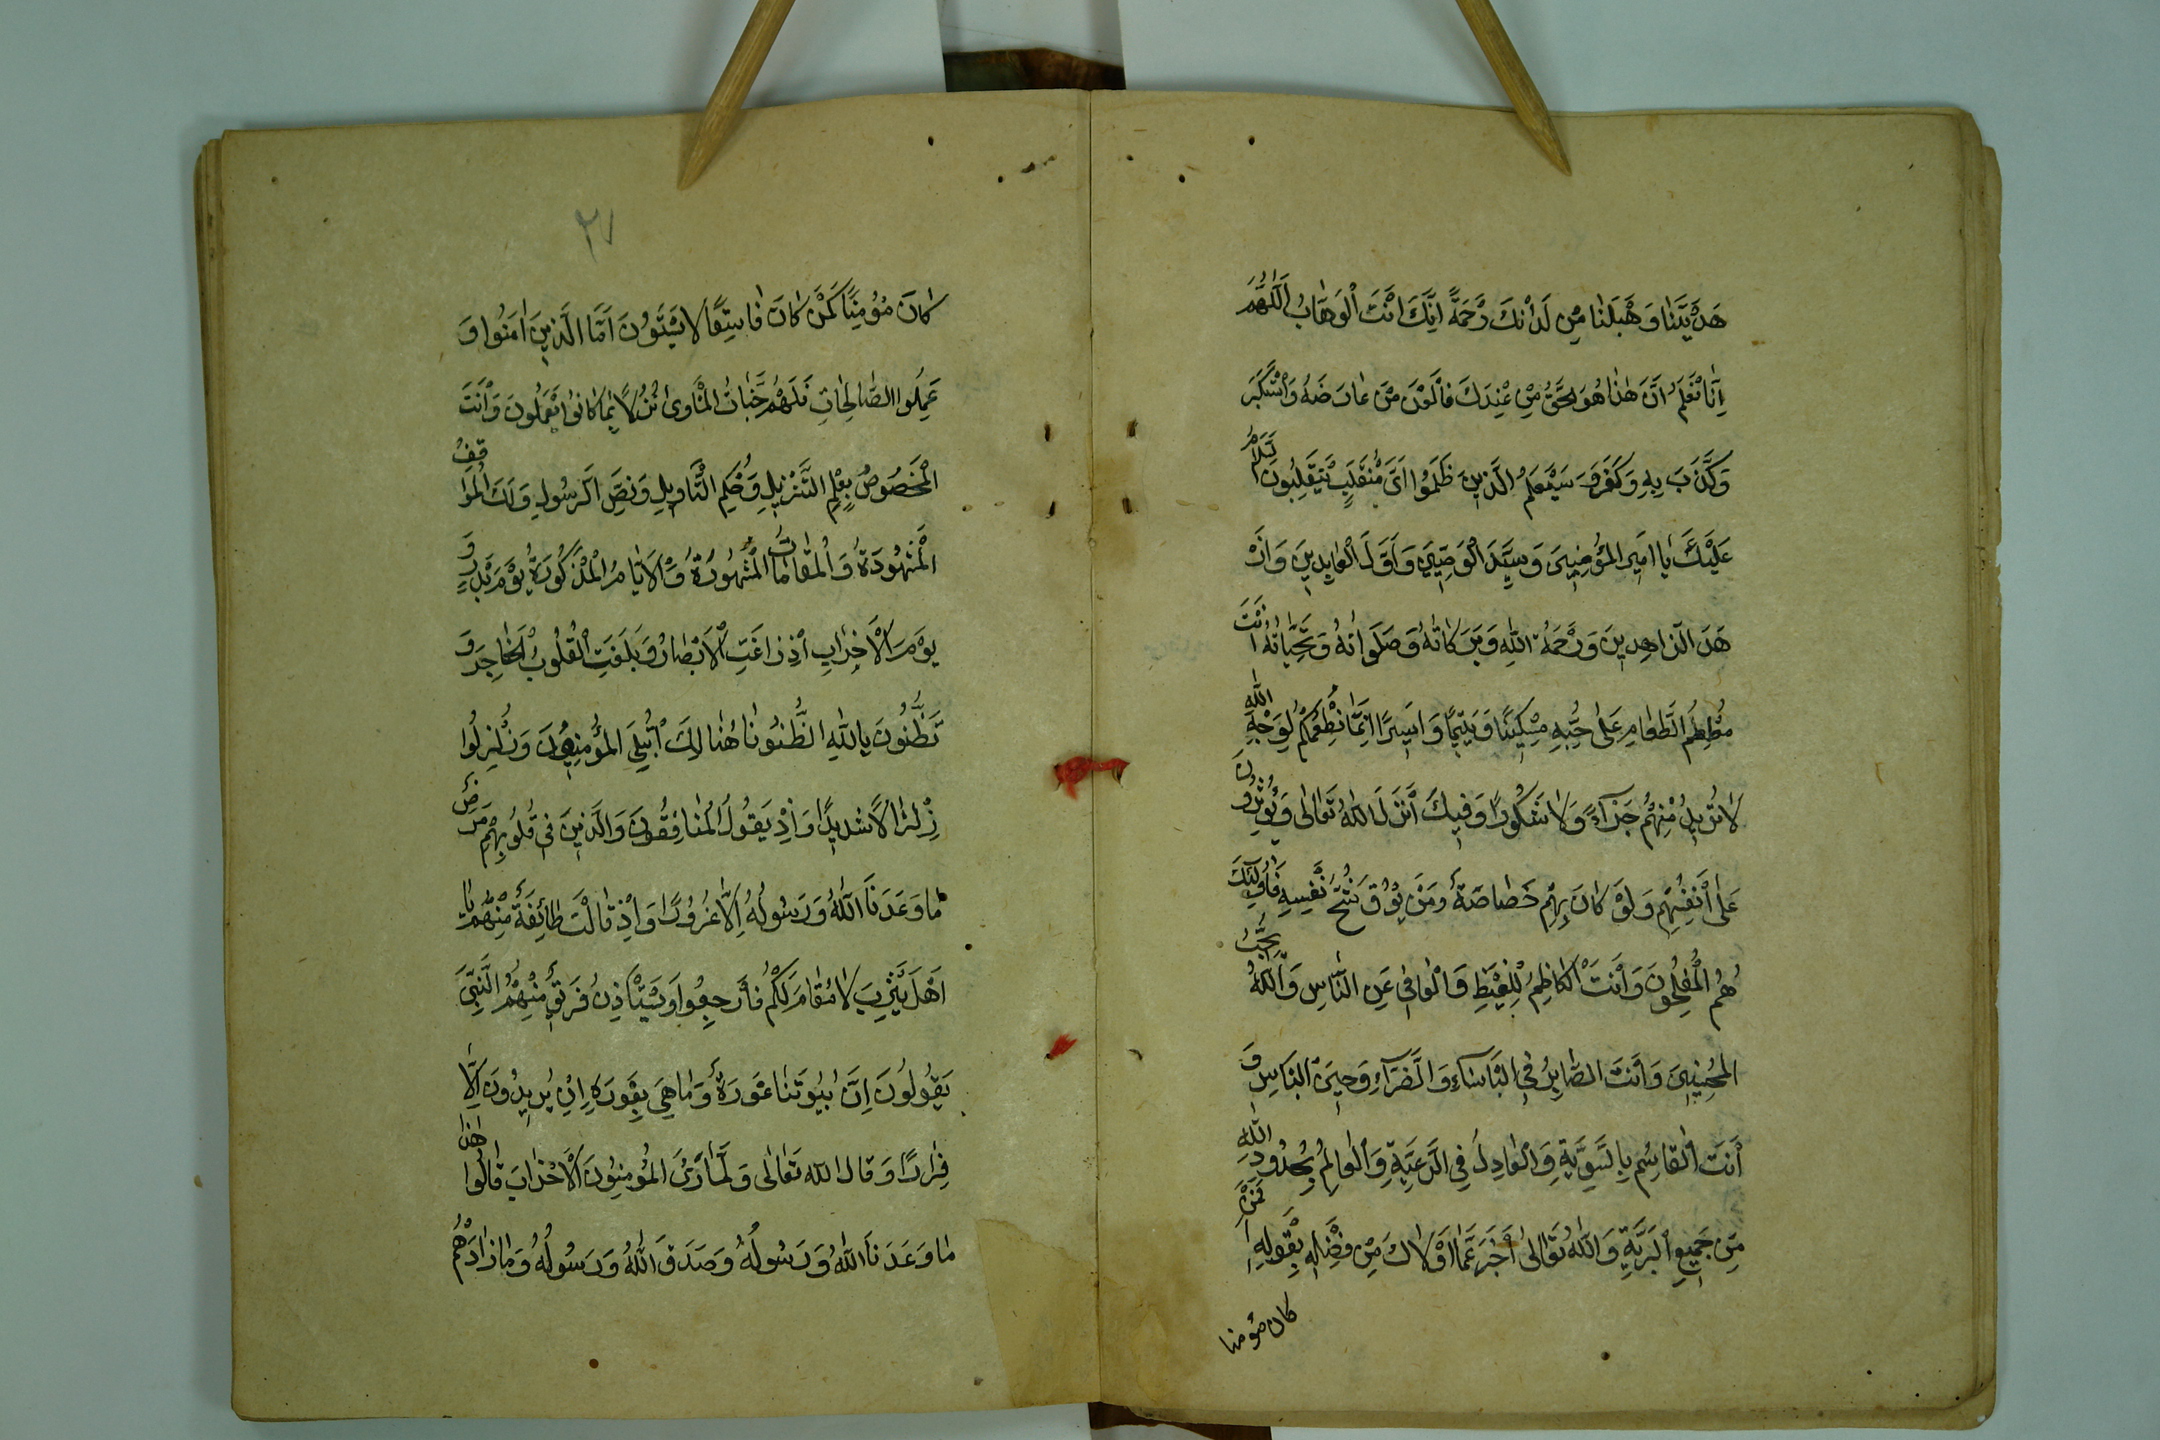 هَدَيْتَنَا وَهَبْ لَنَا مِنْ لَدُنْكَ رَحْمَةً اِنَّكَ اَنْتَ الْوَهَّابُ اَللّٰهُمَّ
اِنَّا نَعْلَمُ اَنَّ هٰذَا هُوَ الْحَقُّ مِنْ عِنْدِكَ فَالْعَنْ مَنْ عَارَضَهُ وَاسْتَكْبَرَ
وَكَذَّبَ بِهِ وَكَفَرَ وَسَيَعْلَمُ الَّذِينَ ظَلَمُوا اَىَّ مُنْقَلَبٍ يَنْقَلِبُونَ اَلسَّلَامُ
عَلَيْكَ يَا اَمِيرَ الْمُؤْمِنِينَ وَسَيِّدَ الْوَصِيِّينَ وَاَوَّلَ الْعَابِدِينَ وَاَزْ
هَدَ الزَّاهِدِينَ وَرَحْمَةُ اللهِ وَبَرَكَاتُهُ وَصَلَوَاتُهُ وَتَحِيَّاتُهُ اَنْتَ
مُطْعِمُ الطَّعَامِ عَلٰى حُبِّهِ مِسْكِينًا وَيَتِيمًا وَاَسِيرًا اِنَّمَا نُطْعِمُكُمْ لِوَجْهِ اللهِ
لَا نُرِيدُ مِنْهُمْ جَزَآءً وَلَا شُكُورًا وَفِيكَ اَنْزَلَ اللهُ تَعَالٰى وَيُؤْثِرُونَ
عَلٰى اَنْفُسِهِمْ وَلَوْ كَانَ بِهِمْ خَصَاصَةٌ وَمَنْ يُوقَ شُحَّ نَفْسِهِ فَاُولٰئِكَ
هُمُ الْمُفْلِحُونَ وَاَنْتَ الْكَاظِمُ لِلْغَيْظِ وَالْعَافِى عَنِ النَّاسِ وَاللهُ يُحِبُّ
الْمُحْسِنِينَ وَاَنْتَ الصَّابِرُ فِى الْبَأْسَاءِ وَالضَّرَّآءِ وَحِينَ الْبَأْسِ وَ
اَنْتَ الْقَاسِمُ بِالسَّوِيَّةِ وَالْعَادِلُ فِى الرَّعِيَّةِ وَالْعَالِمُ بِحُدُودِ اللهِ
مِنْ جَمِيعِ الْبَرِيَّةِ وَاللهُ تَعَالٰى اَخْبَرَ عَمَّا اَوْلَاكَ مِنْ فَضْلِهِ بِقَوْلِهِ اَفَمَنْ
كان مؤمنا
٢٧
كَانَ مُؤْمِنًا كَمَنْ كَانَ فَاسِقًا لَا يَسْتَوُونَ اَمَّا الَّذِينَ اٰمَنُوا وَ
عَمِلُوا الصَّالِحَاتِ فَلَهُمْ جَنَّاتُ الْمَأْوٰى نُزُلًا بِمَا كَانُوا يَعْمَلُونَ وَاَنْتَ
الْمَخْصُوصُ بِعِلْمِ التَّنْزِيلِ وَحُكْمِ التَّأْوِيلِ وَنَصِّ الرَّسُولِ وَلَكَ الْمَوَاقِفُ
الْمَشْهُودَةُ وَالْمَقَامَاتُ الْمَشْهُورَةُ وَالْاَيَّامُ الْمَذْكُورَةُ يَوْمَ بَدْرٍ وَ
يَوْمَ الْاَحْزَابِ اِذْ زَاغَتِ الْاَبْصَارُ وَبَلَغَتِ الْقُلُوبُ الْحَنَاجِرَ وَ
تَظُنُّونَ بِاللهِ الظُّنُونَا هُنَالِكَ ابْتُلِىَ الْمُؤْمِنُونَ وَزُلْزِلُوا
زِلْزَالًا شَدِيدًا وَاِذْ يَقُولُ الْمُنَافِقُونَ وَالَّذِينَ فِى قُلُوبِهِمْ مَرَضٌ
مَا وَعَدَنَا اللهُ وَرَسُولُهُ اِلَّا غُرُورًا وَاِذْ قَالَتْ طَائِفَةٌ مِنْهُمْ يَا
اَهْلَ يَثْرِبَ لَا مُقَامَ لَكُمْ فَارْجِعُوا وَيَسْتَأْذِنُ فَرِيقٌ مِنْهُمُ النَّبِىَّ
يَقُولُونَ اِنَّ بُيُوتَنَا عَوْرَةٌ وَمَا هِىَ بِعَوْرَةٍ اِنْ يُرِيدُونَ اِلَّا
فِرَارًا وَقَالَ الله تَعَالٰى وَلَمَّا رَاَى الْمُؤْمِنُونَ الْاَحْزَابَ قَالُوا هٰذَا
مَا وَعَدَنَا اللهُ وَرَسُولُهُ وَصَدَقَ اللهُ وَرَسُولُهُ وَمَا زَادَهُمْ